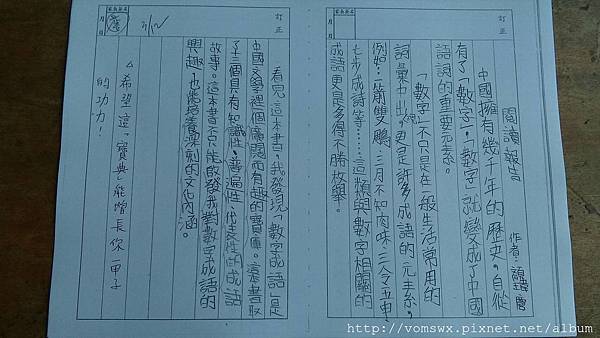 訂正
月 日
閱讀報告
作者：
中國擁有幾千年的歷史，自從
有了「數字」，「數字」就變成了中國
語詞的重要元素。
「數字」不只是在一般生活常用的
詞彙中出現，更是許多成語的元素，
例如：一箭雙鵰、三月不知肉味、三令五申、
七步成詩等……這類與數字相關的
成語更是多得不勝枚舉。
訂正
月 日
3/12
看完這本書，我發現「數字成語」是
中國文學裡個廣闊而有趣的寶庫。這書取
了三個具有知識性、普遍性、代表性的成語
故事。這本書不只能啟發我對數字成語的
興趣，也能培養深刻的文化內涵。
△希望這「寶典」能增長你一甲子
的功力！
http://vomswx.pixnet.net/album